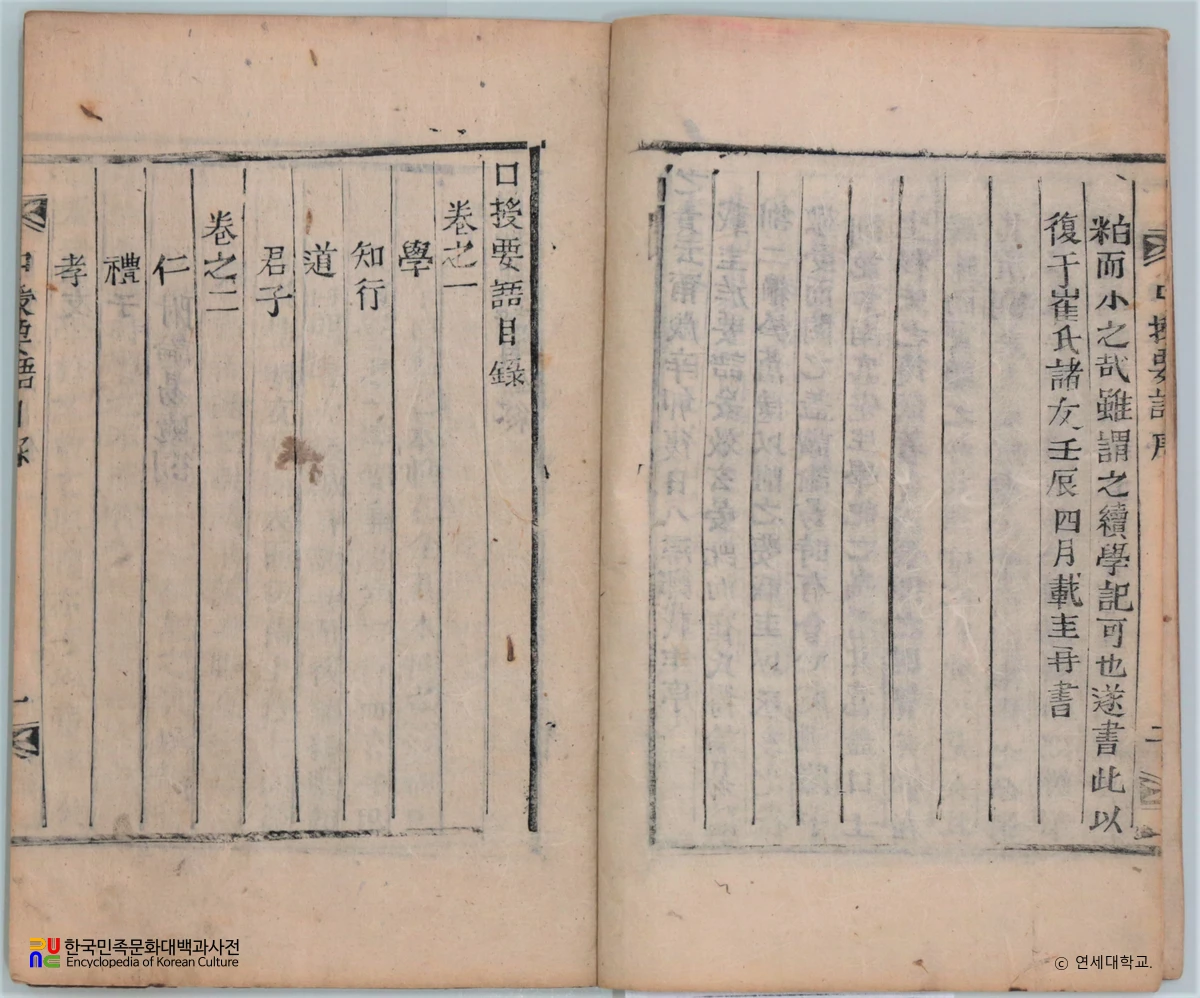 粕而小之哉雖謂之續學記可也遂書此以
復于崔氏諸友壬辰四月載圭再書
口授要語序
二
口授要語目錄
卷之一
學
知行
道
君子
卷之二
仁
禮
孝
口授要語目錄
一
한국민족문화대백과사전
Encyclopedia of Korean Culture
ⓒ 연세대학교.